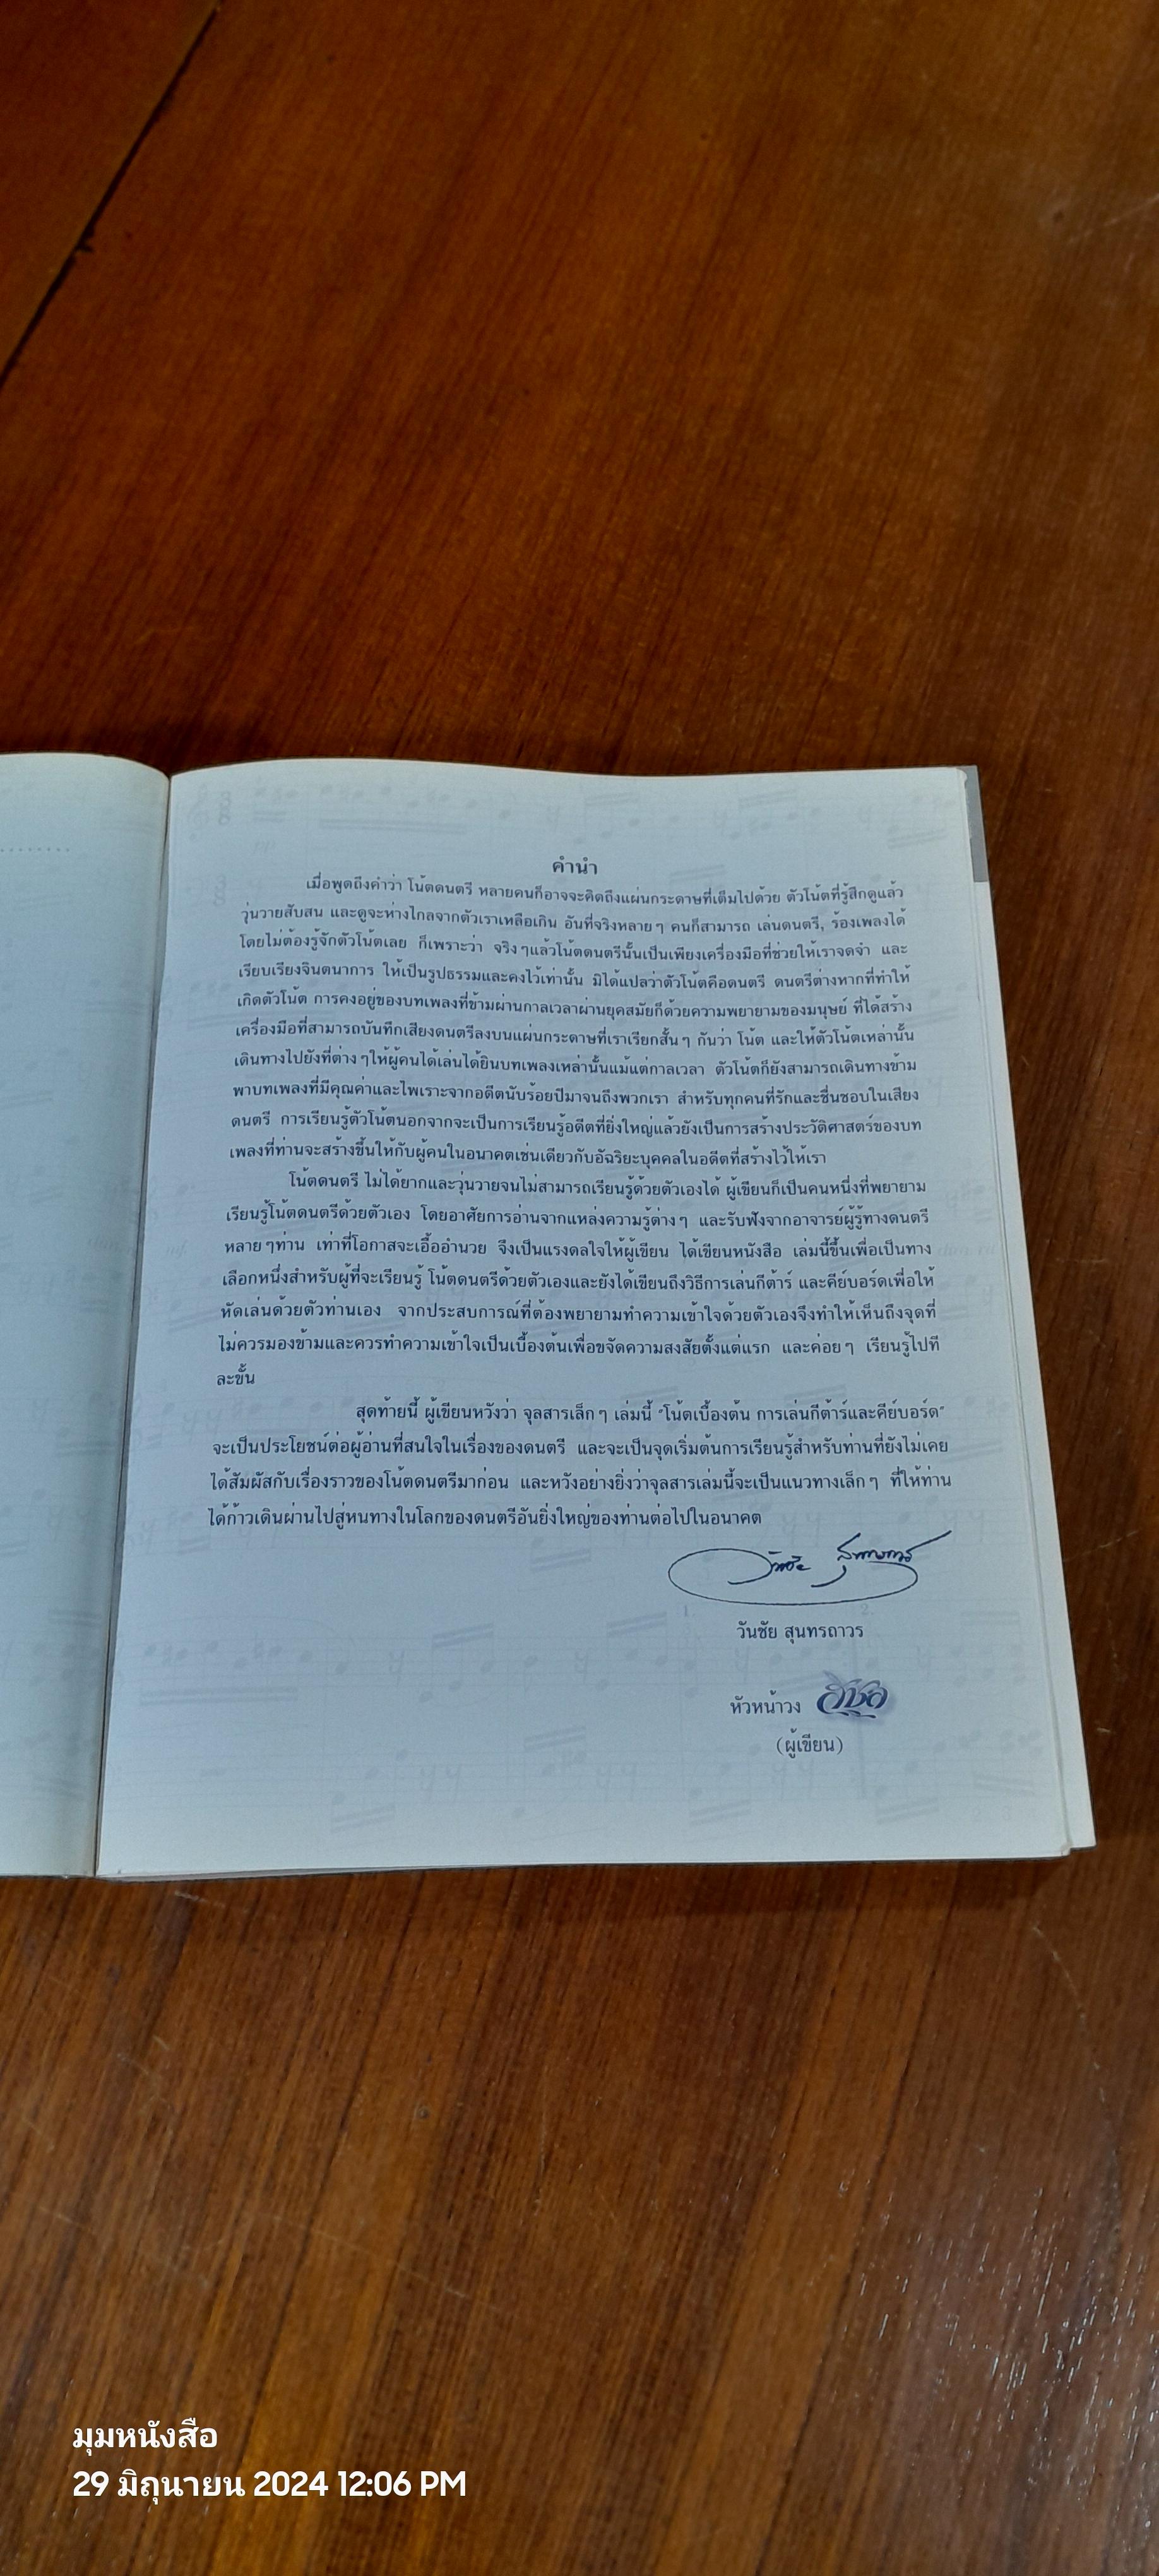 คำนำ
เมื่อพูดถึงคำว่า โน้ตดนตรี หลายคนก็อาจจะคิดถึงแผ่นกระดาษที่เต็มไปด้วย ตัวโน้ตที่รู้สึกดูแล้ว
วุ่นวายสับสน และดูจะห่างไกลจากตัวเราเหลือเกิน อันที่จริงหลายๆ คนก็สามารถ เล่นดนตรี, ร้องเพลงได้
โดยไม่ต้องรู้จักตัวโน้ตเลย ก็เพราะว่า จริงๆแล้วโน้ตดนตรีนั้นเป็นเพียงเครื่องมือที่ช่วยให้เราจดจำ และ
เรียบเรียงจินตนาการ ให้เป็นรูปธรรมและคงไว้เท่านั้น มิได้แปลว่าตัวโน้ตคือดนตรี ดนตรีต่างหากที่ทำให้
เกิดตัวโน้ต การคงอยู่ของบทเพลงที่ข้ามผ่านกาลเวลาผ่านยุคสมัยก็ด้วยความพยายามของมนุษย์ ที่ได้สร้าง
เครื่องมือที่สามารถบันทึกเสียงดนตรีลงบนแผ่นกระดาษที่เราเรียกสั้นๆ กันว่า โน้ต และให้ตัวโน้ตเหล่านั้น
เดินทางไปยังที่ต่างๆให้ผู้คนได้เล่นได้ยินบทเพลงเหล่านั้นแม้แต่กาลเวลา ตัวโน้ตก็ยังสามารถเดินทางข้าม
พาบทเพลงที่มีคุณค่าและไพเราะจากอดีตนับร้อยปีมาจนถึงพวกเรา สำหรับทุกคนที่รักและชื่นชอบในเสียง
ดนตรี การเรียนรู้ตัวโน้ตนอกจากจะเป็นการเรียนรู้อดีตที่ยิ่งใหญ่แล้วยังเป็นการสร้างประวัติศาสตร์ของบท
เพลงที่ท่านจะสร้างขึ้นให้กับผู้คนในอนาคตเช่นเดียวกับอัฉริยะบุคคลในอดีตที่สร้างไว้ให้เรา
โน้ตดนตรี ไม่ได้ยากและวุ่นวายจนไม่สามารถเรียนรู้ด้วยตัวเองได้ ผู้เขียนก็เป็นคนหนึ่งที่พยายาม
เรียนรู้โน้ตดนตรีด้วยตัวเอง โดยอาศัยการอ่านจากแหล่งความรู้ต่างๆ และรับฟังจากอาจารย์ผู้รู้ทางดนตรี
หลายๆท่าน เท่าที่โอกาสจะเอื้ออำนวย จึงเป็นแรงดลใจให้ผู้เขียน ได้เขียนหนังสือ เล่มนี้ขึ้นเพื่อเป็นทาง
เลือกหนึ่งสำหรับผู้ที่จะเรียนรู้ โน้ตดนตรีด้วยตัวเองและยังได้เขียนถึงวิธีการเล่นกีต้าร์ และคีย์บอร์ดเพื่อให้
หัดเล่นด้วยตัวท่านเอง จากประสบการณ์ที่ต้องพยายามทำความเข้าใจด้วยตัวเองจึงทำให้เห็นถึงจุดที่
ไม่ควรมองข้ามและควรทำความเข้าใจเป็นเบื้องต้นเพื่อขจัดความสงสัยตั้งแต่แรก และค่อยๆ เรียนรู้ไปที
ละขั้น
สุดท้ายนี้ ผู้เขียนหวังว่า จุลสารเล็กๆ เล่มนี้ "โน้ตเบื้องต้น การเล่นกีต้าร์และคีย์บอร์ด"
จะเป็นประโยชน์ต่อผู้อ่านที่สนใจในเรื่องของดนตรี และจะเป็นจุดเริ่มต้นการเรียนรู้สำหรับท่านที่ยังไม่เคย
ได้สัมผัสกับเรื่องราวของโน้ตดนตรีมาก่อน และหวังอย่างยิ่งว่าจุลสารเล่มนี้จะเป็นแนวทางเล็กๆ ที่ให้ท่าน
ได้ก้าวเดินผ่านไปสู่หนทางในโลกของดนตรีอันยิ่งใหญ่ของท่านต่อไปในอนาคต
วันชัย สุนทรถาวร
วันชัย สุนทรถาวร
หัวหน้าวง
(ผู้เขียน)
มุมหนังสือ
29 มิถุนายน 2024 12:06 PM